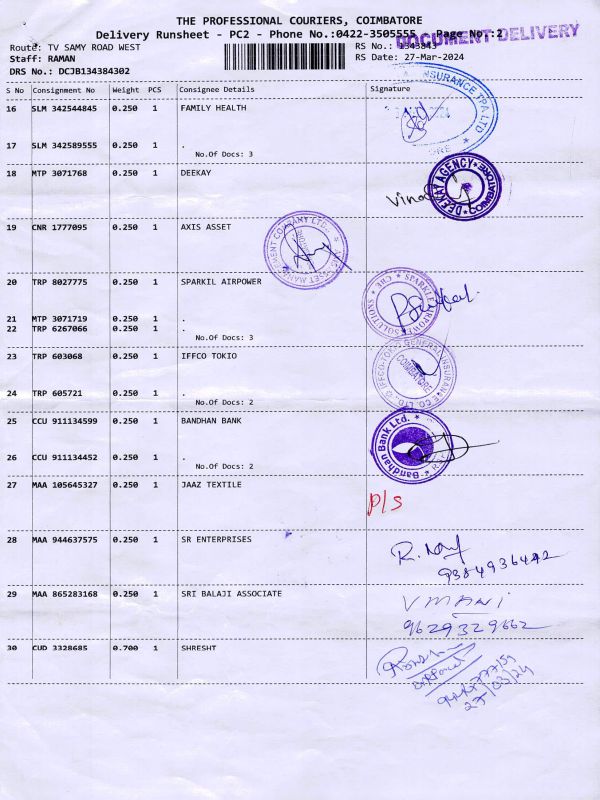 THE PROFESSIONAL COURIERS, COIMBATORE
Delivery Runsheet - PC2 - Phone No.:0422-3505555 Page No.:2
DOCUMENT DELIVERY
Route: TV SAMY ROAD WEST RS No.: 1343843
Staff: RAMAN RS Date: 27-Mar-2024
DRS No.: DCJB134384302
S No Consignment No Weight PCS Consignee Details Signature
16 SLM 342544845 0.250 1 FAMILY HEALTH
INSURANCE TPA LTD
17 SLM 342589555 0.250 1 .
No.Of Docs: 3
18 MTP 3071768 0.250 1 DEEKAY
DEEKAY AGENCY COIMBATORE
19 CNR 1777095 0.250 1 AXIS ASSET
AXIS ASSET MANAGEMENT COMPANY LTD.
20 TRP 8027775 0.250 1 SPARKIL AIRPOWER
SPARKLE AIRPOWER SOLUTIONS CBE
21 MTP 3071719 0.250 1 .
22 TRP 6267066 0.250 1 .
No.Of Docs: 3
23 TRP 603068 0.250 1 IFFCO TOKIO
IFFCO-TOKIO GENERAL INSURANCE CO. LTD. COIMBATORE
24 TRP 605721 0.250 1 .
No.Of Docs: 2
25 CCU 911134599 0.250 1 BANDHAN BANK
Bandhan Bank Ltd.
26 CCU 911134452 0.250 1 .
No.Of Docs: 2
27 MAA 105645327 0.250 1 JAAZ TEXTILE
P/S
28 MAA 944637575 0.250 1 SR ENTERPRISES
29 MAA 865283168 0.250 1 SRI BALAJI ASSOCIATE
V MANI
9629329662
30 CUD 3328685 0.700 1 SHRESHT
27/03/24